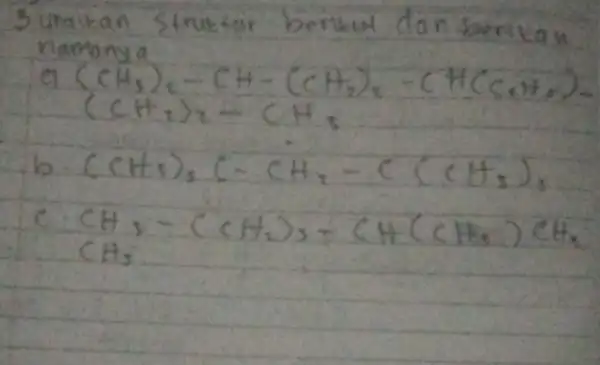 3 uraikan struktur berikut dan berikan
namanya
a (CH₃)₂ - CH - (CH₂)₂ - CH(C₂H₅) -
(CH₂)₂ - CH₃
b. (CH₃)₃ C - CH₂ - C (CH₃)₃
c. CH₃ - (CH₂)₃ - CH (CH₃) CH₂
CH₃